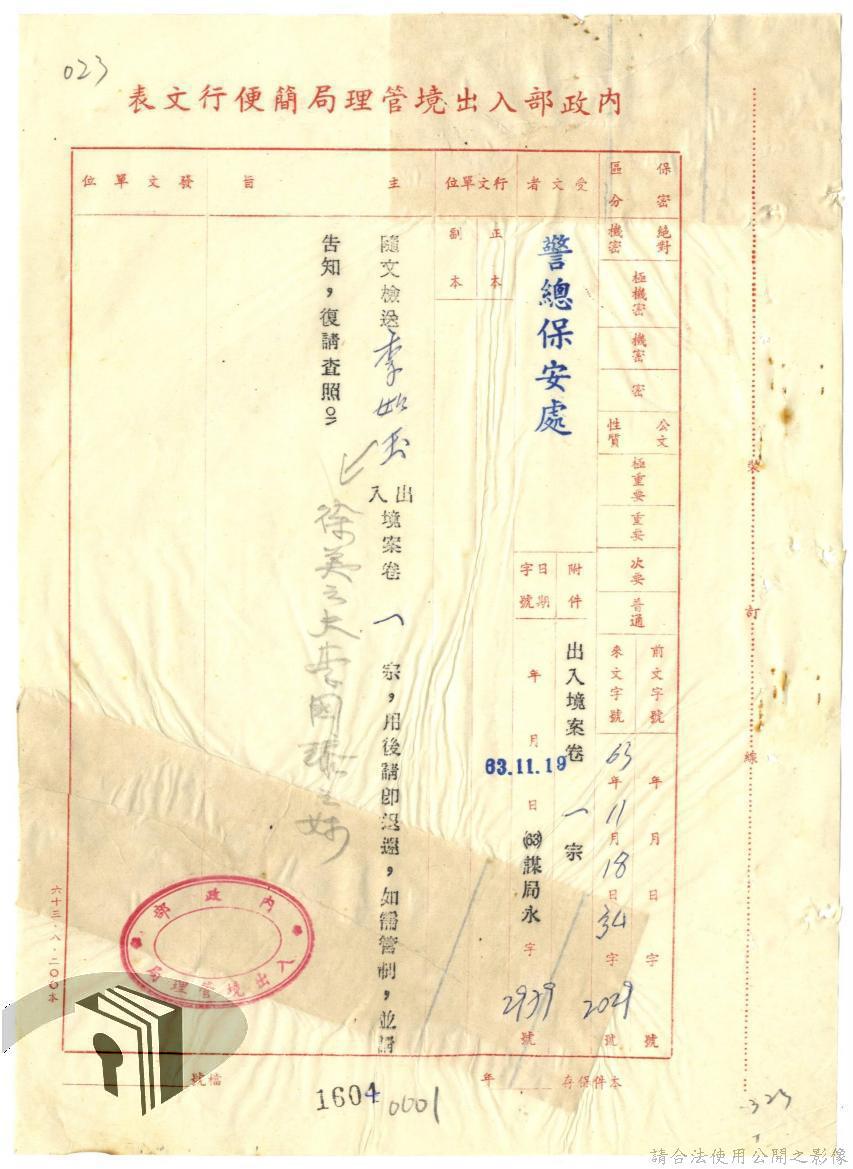 023
內政部入出境管理局簡便行文表
保密區分
絕對機密
極機密
機密
密
公文性質
極重要
重要
次要
普通
前文字號
年 月 日 字 號
來文字號
63年11月18日 字2029號
受文者
警總保安處
附件
出入境案卷一宗
日期字號
年 月 日
63.11.19
(63)謀局永字2939號
行文單位
正本
副本
主旨
隨文檢送李如玉出入境案卷一宗,用後請即退還,如需管制,並請
告知,復請查照。
發文單位
內政部
入出境管理局
裝 訂 線
六十三.八.二○○本
檔號
年
本件保存
1604
0001
323
請合法使用公開之影像